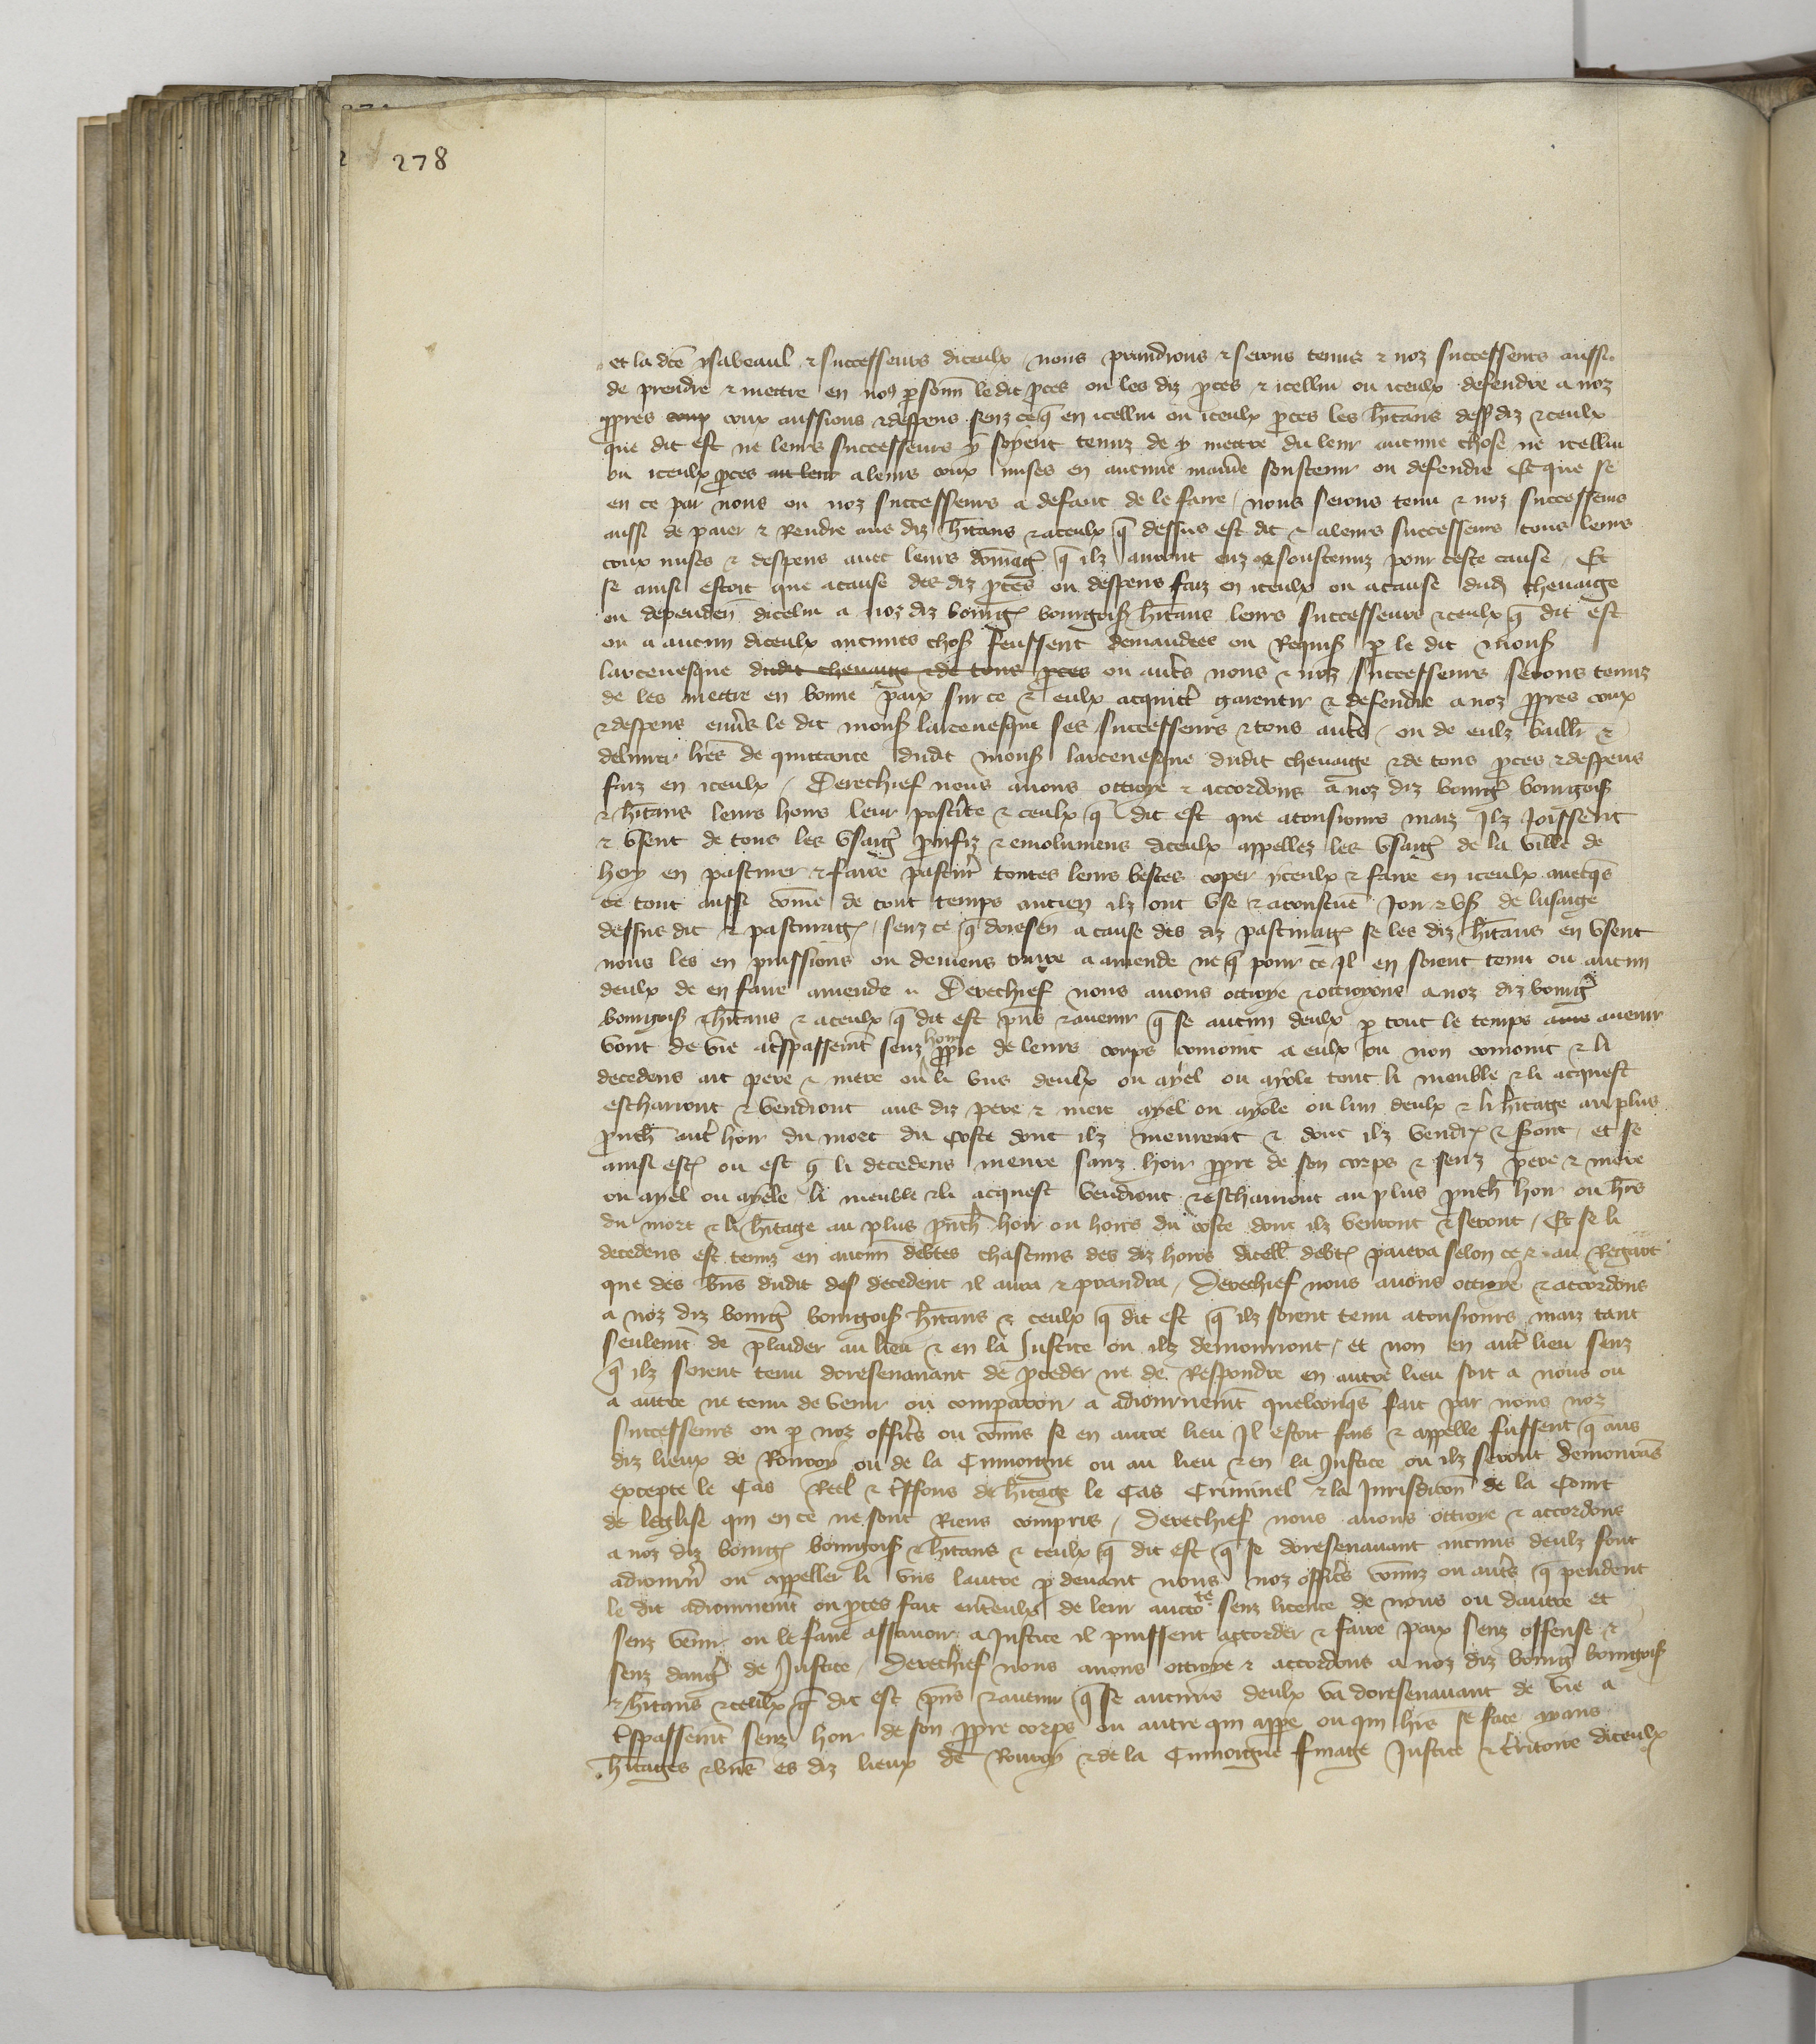 278
et la dce ysabeaul & successeurs diceulx nous prandrons & serons tenuz & noz successeurs aussi
de prendre & mettre en nos personn ledit pces ou les diz pces & icellui ou iceulx defendre a noz
ppres coux coux aussions & despens senz ce q en icellui ou iceulx pces les hitans dess diz & ceulx
que dit est ne leurs successeurs y soyent tenuz de y mettre du leur aucune chose ne icellui
ou iceulx pces au leur a leurs coux mises en aucune manie soustenir ou defendre Et que se
en ce par nous ou noz successeurs a defaut de le faire nous serons tenu & noz successeurs
aussi de paier & Rendre aus diz hitans & a ceulx q dessus est dit & a leurs successeurs tous leurs
coux mises & despens avec leurs domag q ilz auront euz & soustenuz pour ceste cause Et
se ainsi estoit que a cause des diz pces ou despens faiz en iceulx ou a cause dud chevaige
ou dependen dicelui a noz diz bourg bourgois hitans leurs successeurs & ceulx q dit est
ou a aucun diceulx aucunes chos feussent demandees ou Requis p le dit mons
larcevesque dudit chevaige & de tous pces ou auts nous & noz successeurs serons tenuz
de les mettre en bonne paix sur ce & eulx acquitt garentir & defendre a noz ppres coux
& despens envs le dit mons larcevesque ses successeurs & tous auts ou de eulz baill &
delivrer lres de quittance dudit mons larcevesque dudit chevaige & de tous pces & despens
faiz en iceulx Derechief nous avons ottroye & accordons a noz diz bourg bourgois
& hitans leurs hoirs leur posterite & ceulx q dit est que a tousiours maiz Ilz Joissent
& usent de tous les usaig proufiz & emolumens diceulx appellez les usaig de la ville de
hery en pasturer & faire pastur toutes leurs bestes coper yceulx & faire en iceulx avecqs
ce tout aussi come de tout temps ancien ilz ont use & acoustume Jou & us de lusaige
dessus dit & pasturag senz ce q doresen a cause des diz pasturag se les diz hitans en usent
nous les en puissions ou deviens traire a amende ne q pour ce Il en soient tenu ou aucun
deulx de en faire amende Derechief nous avons ottroye & ottroyons a noz diz bourg
bourgois & hitans & a ceulx q dit est pns & avenir q se aucun deulx p tout le temps avenir
vont de vie a trspassemt senz hoir ppre de leurs corps comoint a eulx ou non comoint & li
decedens ait pere & mere ou li uns deulx ou ayel ou ayole tout li meuble & li acquest
escharront & vendront aus diz pere & mere ayel ou ayole ou lun deulx & li hitage au plus
pruch aut hoir du mort du coste dont ilz meurent & dont ilz vendr & sont et se
ainsi est ou est q li decedens meure sanz hoir ppre de son corps & senz pere & mere
ou ayel ou ayele li meuble & li acquest vendront & escharront au plus pruch hoir ou hrs
du mort & li hitage au plus pruch hoir ou hoirs du coste dont ilz venront & seront Et se li
decedens est tenuz en aucun debtes chascuns des diz hoirs dicell debt paiera selon ce & au Regart
que des bns dudit decedent il aura & prandra Derechief nous avons ottroye & accordons
a noz diz bourg bourgois hitans & ceulx q dit est q ilz soient tenu a tousiours maiz tant
seulemt de plaider au lieu & en la Justice ou ilz demourront et non en aut lieu senz
q ilz soient tenu doresenavant de pceder ne de Respondre en autre lieu soit a nous ou
a autre ne tenu de venir ou comparoir a adiournemt quelconqs fait par nous noz
successeurs ou p noz offics ou comis se en autre lieu Il estoit fais & appelle fussent q aus
diz lieux de Rouvoy ou de la Cumoigne ou au lieu & en la Justice ou ilz seront demourans
excepte le Cas Reel & tssons de hitage le Cas Criminel & la Jurisdicon de la Court
de leglise qui en ce ne sont Riens compris Derechief nous avons ottroye & accordons
a noz diz bourg bourgois & hitans & ceulx q dit est q se doresenavant aucuns deulz sont
adiourn ou appeller li uns lautre p devant nous noz offics comiz ou auts q pendent
le dit adiournemt ou pces fait ent eulx de leur auctote senz licence de nous ou dautre et
senz venir ou le faire assavoir a Justice il puissent accorder & faire paix senz offense &
senz dang de Justice Derechief nous avons ottroye & accordons a noz diz bourg bourgois
& hitans & ceulx q dit est pns & avenir q se aucuns deulx va doresenavant de vie a
tspassemt senz hoir de son ppre corps ou autre qui appe ou qui hrs se face ayans
hitages & bns es diz lieux de Rouvoy & de la Cumoigne finage Justice & tritoire diceulx